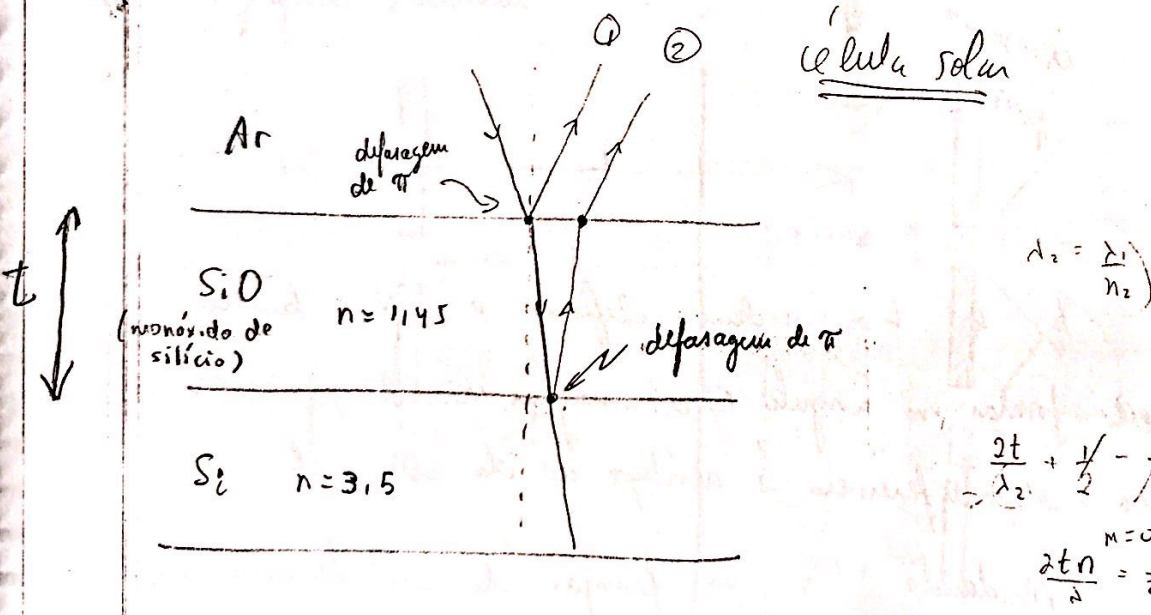 ① ②
célula solar
Ar
defasagem
de π
t
SiO
(monóxido de
silício)
n = 1,45
λ₂ = λ₁/n₂)
defasagem de π
Si n = 3,5
2t/λ₂ + 1/2 -
m = 0
2tn/λ =